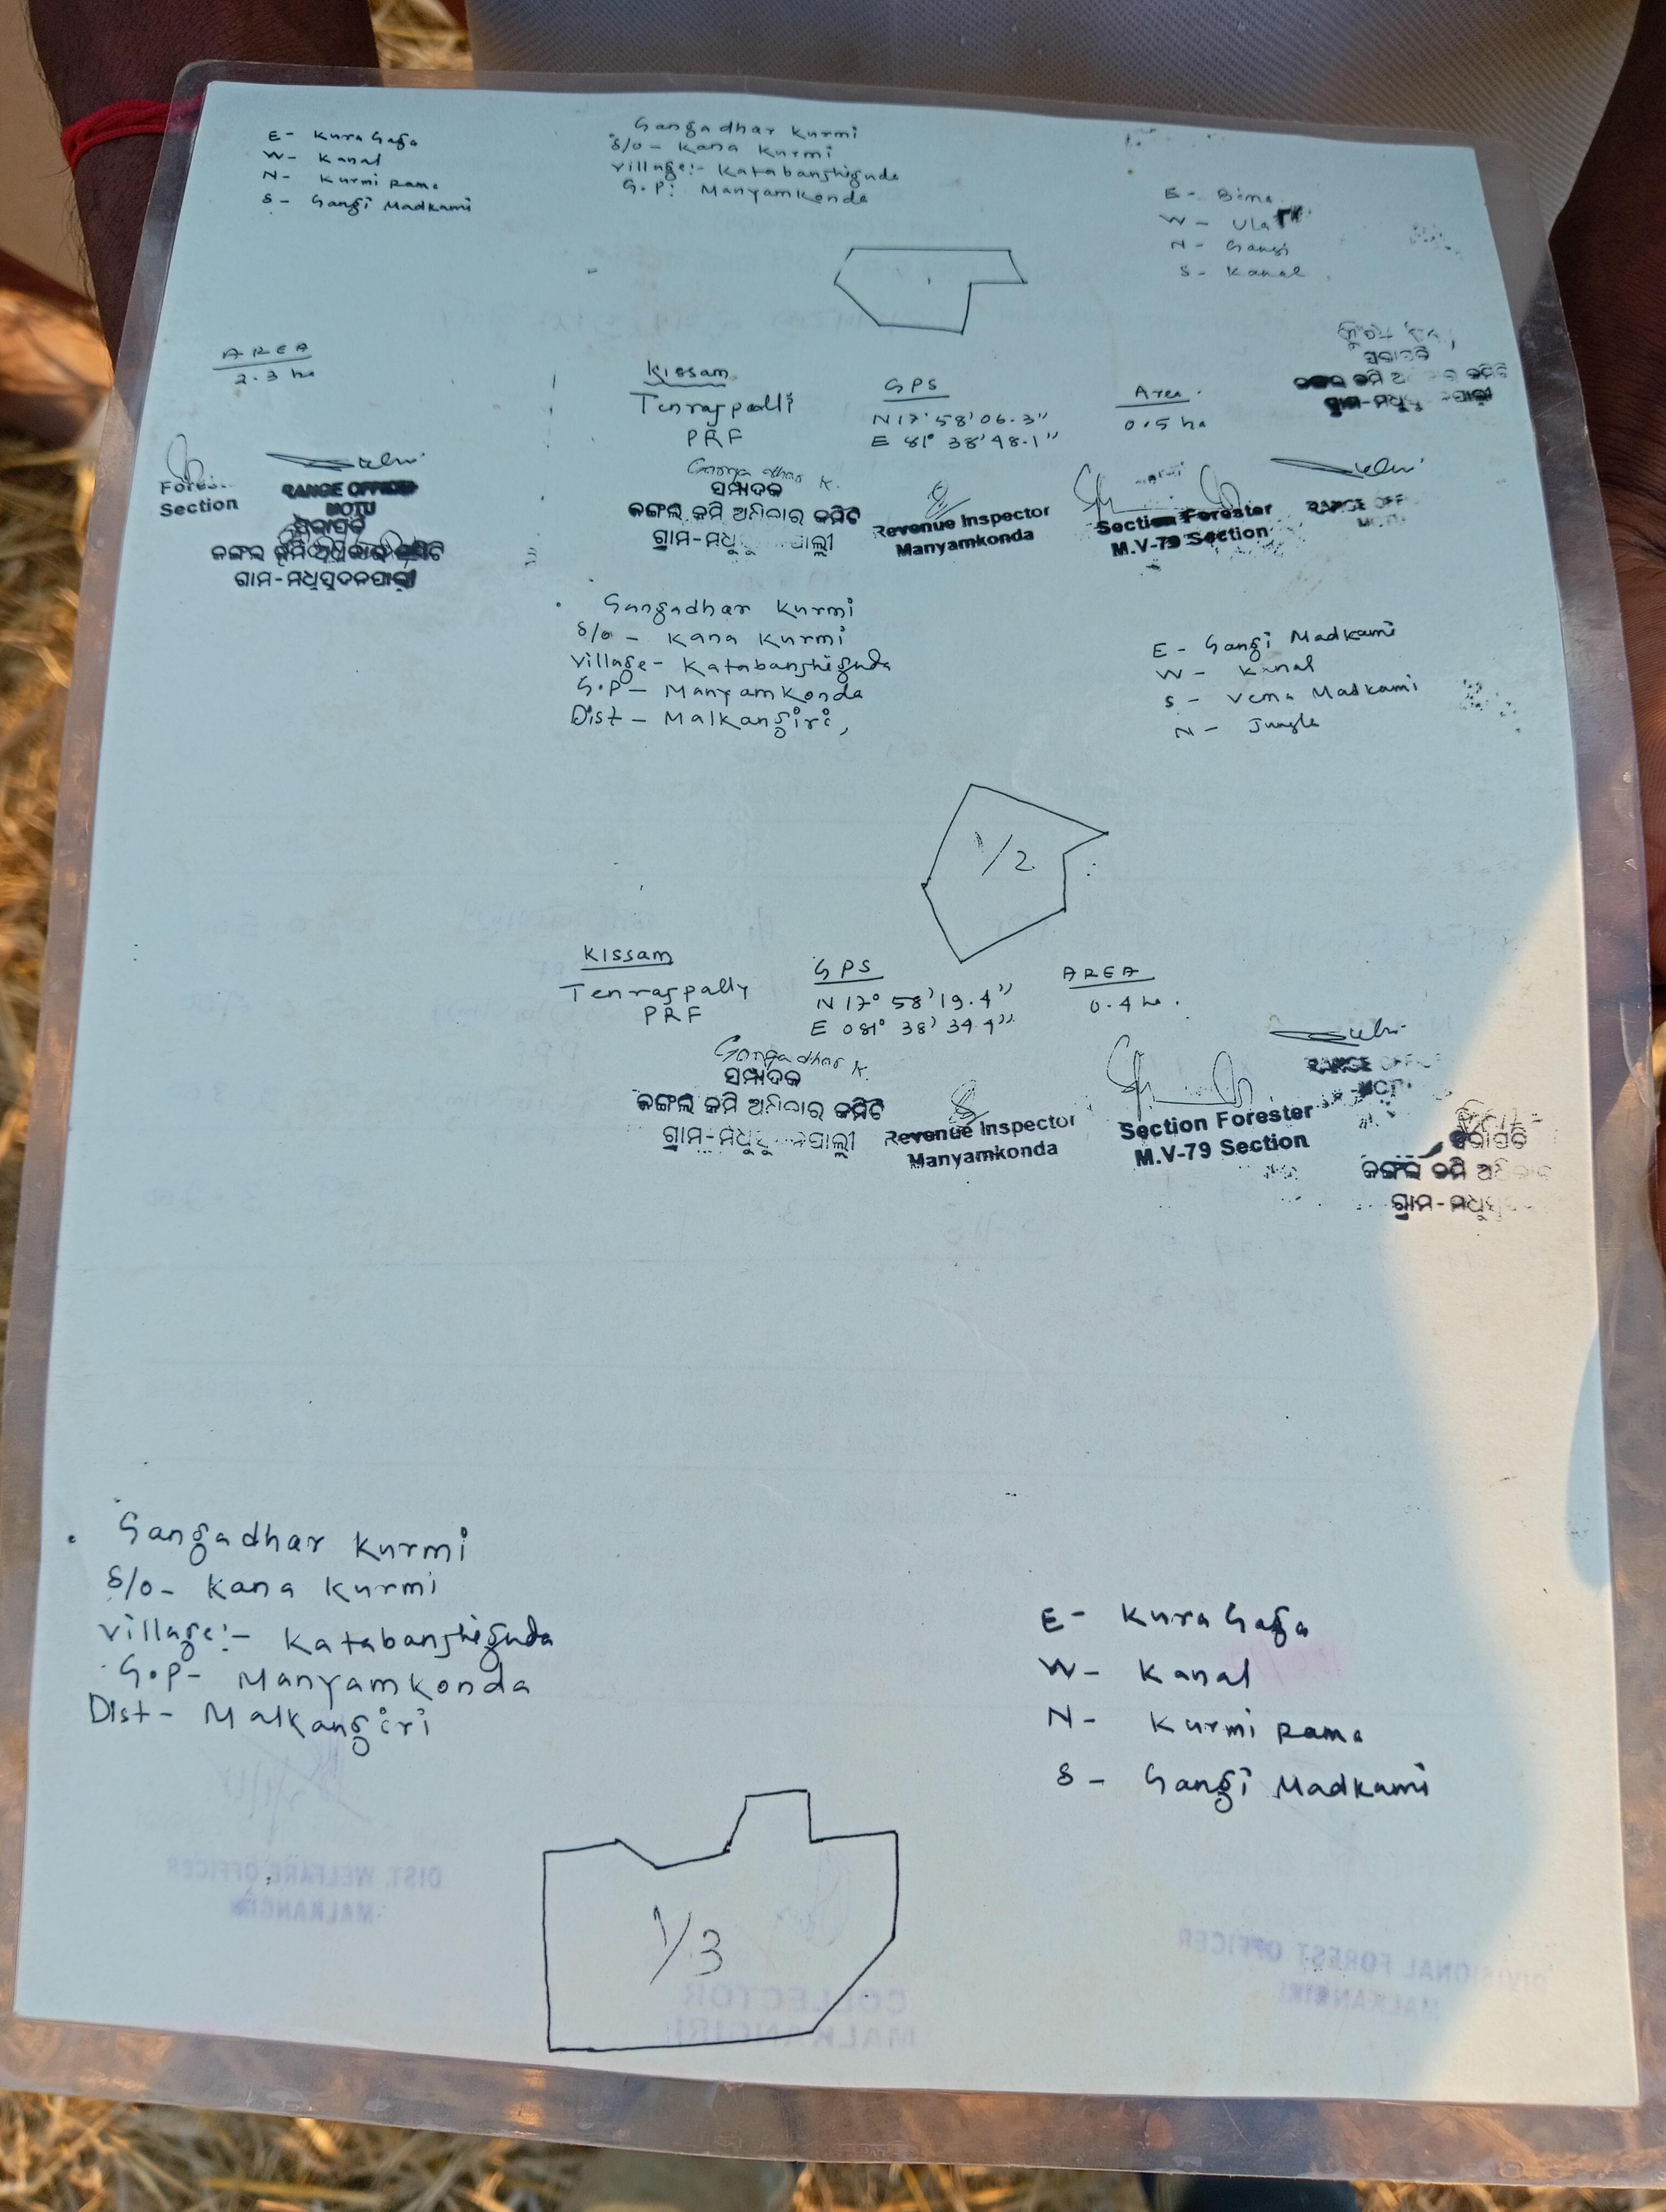 E- Kura Gaga
W- Kanal
N- Kurmi Rama
S- Gangi Madkami
Gangadhar Kurmi
S/o- Kana Kurmi
Village:- Katabanshiguda
G.P: Manyamkonda
E- Bima
W- Ula
N- Gangi
S- Kanal
AREA
2.3 ha
Kissam
Tenraspalli
PRF
GPS
N 17° 58' 06.3"
E 81° 38' 48.1"
Area
0.5 ha
Section
RANGE OFFICER
MOTU
ସଭାପତି
ଜଙ୍ଗଲ ଜମି ଅଧିକାର କମିଟି
ଗ୍ରାମ-ମଧୁସୂଦନପାଲ୍ଲୀ
Gangadhar K.
ସମ୍ପାଦକ
ଜଙ୍ଗଲ ଜମି ଅଧିକାର କମିଟି
ଗ୍ରାମ-
Revenue Inspector
Manyamkonda
Section Forester
M.V-79 Section
RANGE OFF
ସଭାପତି
Gangadhar Kurmi
S/o - Kana Kurmi
Village- Katabanshiguda
G.P- Manyamkonda
Dist- Malkangiri,
E- Gangi Madkami
W- Kanal
S- Vema Madkami
N- Jungle
1/2
KISSAM
Tenraspally
PRF
GPS
N 17° 58' 19.4"
E 081° 38' 34.4"
AREA
0.4 ha.
Gangadhar K.
ସମ୍ପାଦକ
ଜଙ୍ଗଲ ଜମି ଅଧିକାର କମିଟି
ଗ୍ରାମ-
Revenue Inspector
Manyamkonda
Section Forester
M.V-79 Section
RANGE OFFIC
ସଭାପତି
ଜଙ୍ଗଲ ଜମି
ଗ୍ରାମ-
Gangadhar Kurmi
S/o- Kana Kurmi
Village:- Katabanshiguda
G.P- Manyamkonda
Dist- Malkangiri
E- Kura Gaga
W- Kanal
N- Kurmi Rama
S- Gangi Madkami
1/3
DIST. WELFARE OFFICER
MALKANGIRI
COLLECTOR
MALKANGIRI
DIVISIONAL FOREST OFFICER
MALKANGIRI